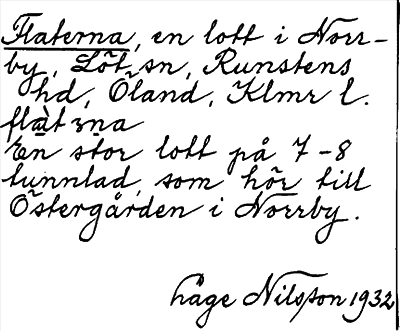 Flaterna, en lott i Norr-
by, Löt sn, Runstens
hd, Öland, Klmr l.
flàtɜṇa
En stor lott på 7-8
tunnlad, som hör till
Östergården i Norrby.
Håge Nilsson 1932